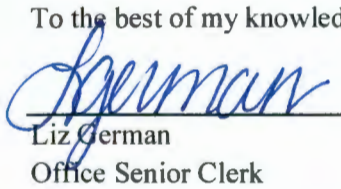 To the best of my knowled
Lgerman
Liz German
Office Senior Clerk